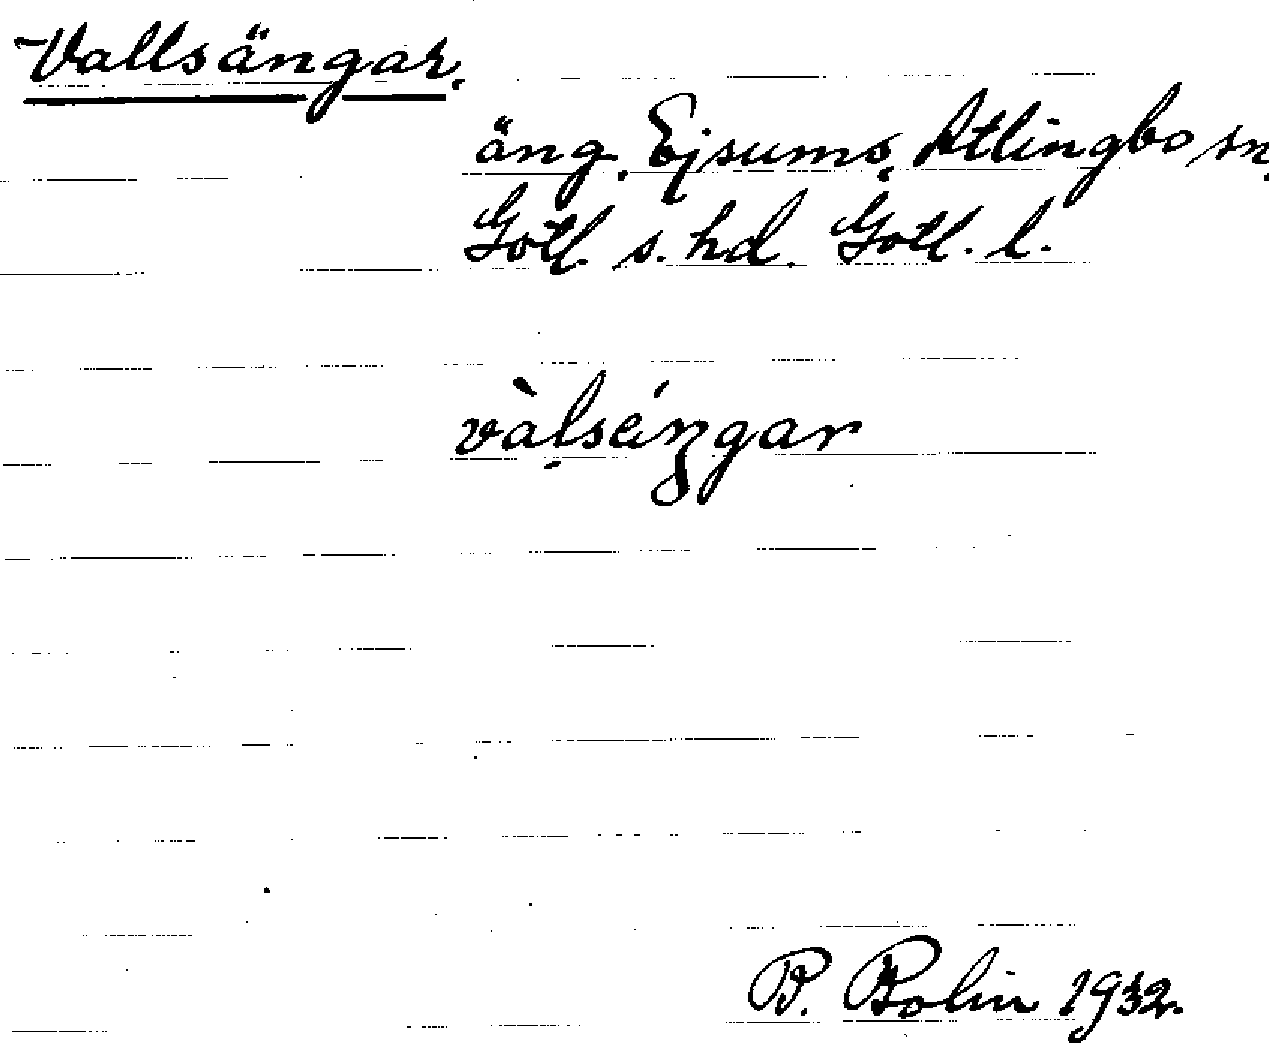 Vallsängar.
äng. Ejsums, Atlingbo sn,
Gotl. s. hd. Gotl. l.
vàlséngar
P. Bolin 1932.